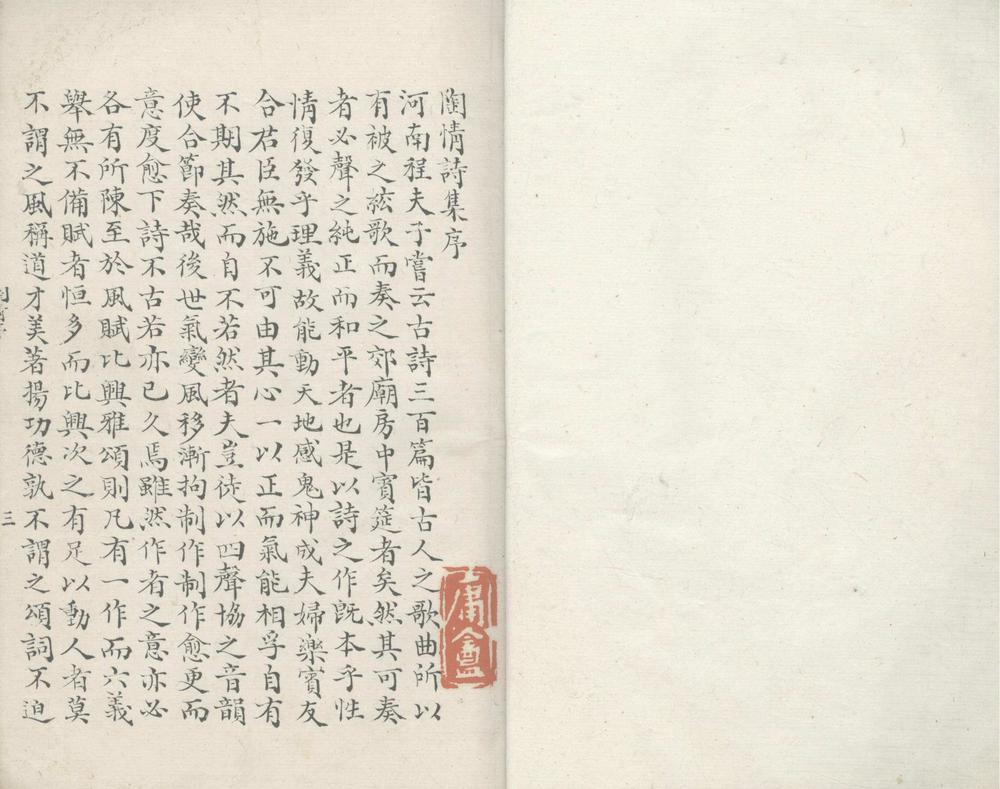 陶情詩集序
河南程夫子嘗云古詩三百篇皆古人之歌曲所以
有被之絃歌而奏之郊廟房中賓筵者矣然其可奏
者必聲之純正而和平者也是以詩之作旣本乎性
情復發乎理義故能動天地感鬼神成夫婦樂賓友
合君臣無施不可由其心一以正而氣能相孚自有
不期其然而自不若然者夫豈徒以四聲協之音韻
使合節奏哉後世氣變風移漸拘制作制作愈更而
意度愈下詩不古若亦已久焉雖然作者之意亦必
各有所陳至於風賦比興雅頌則凡有一作而六義
舉無不備賦者恒多而比興次之有足以動人者莫
不謂之風稱道才美著揚功德孰不謂之頌詞不迫
三
庸盦